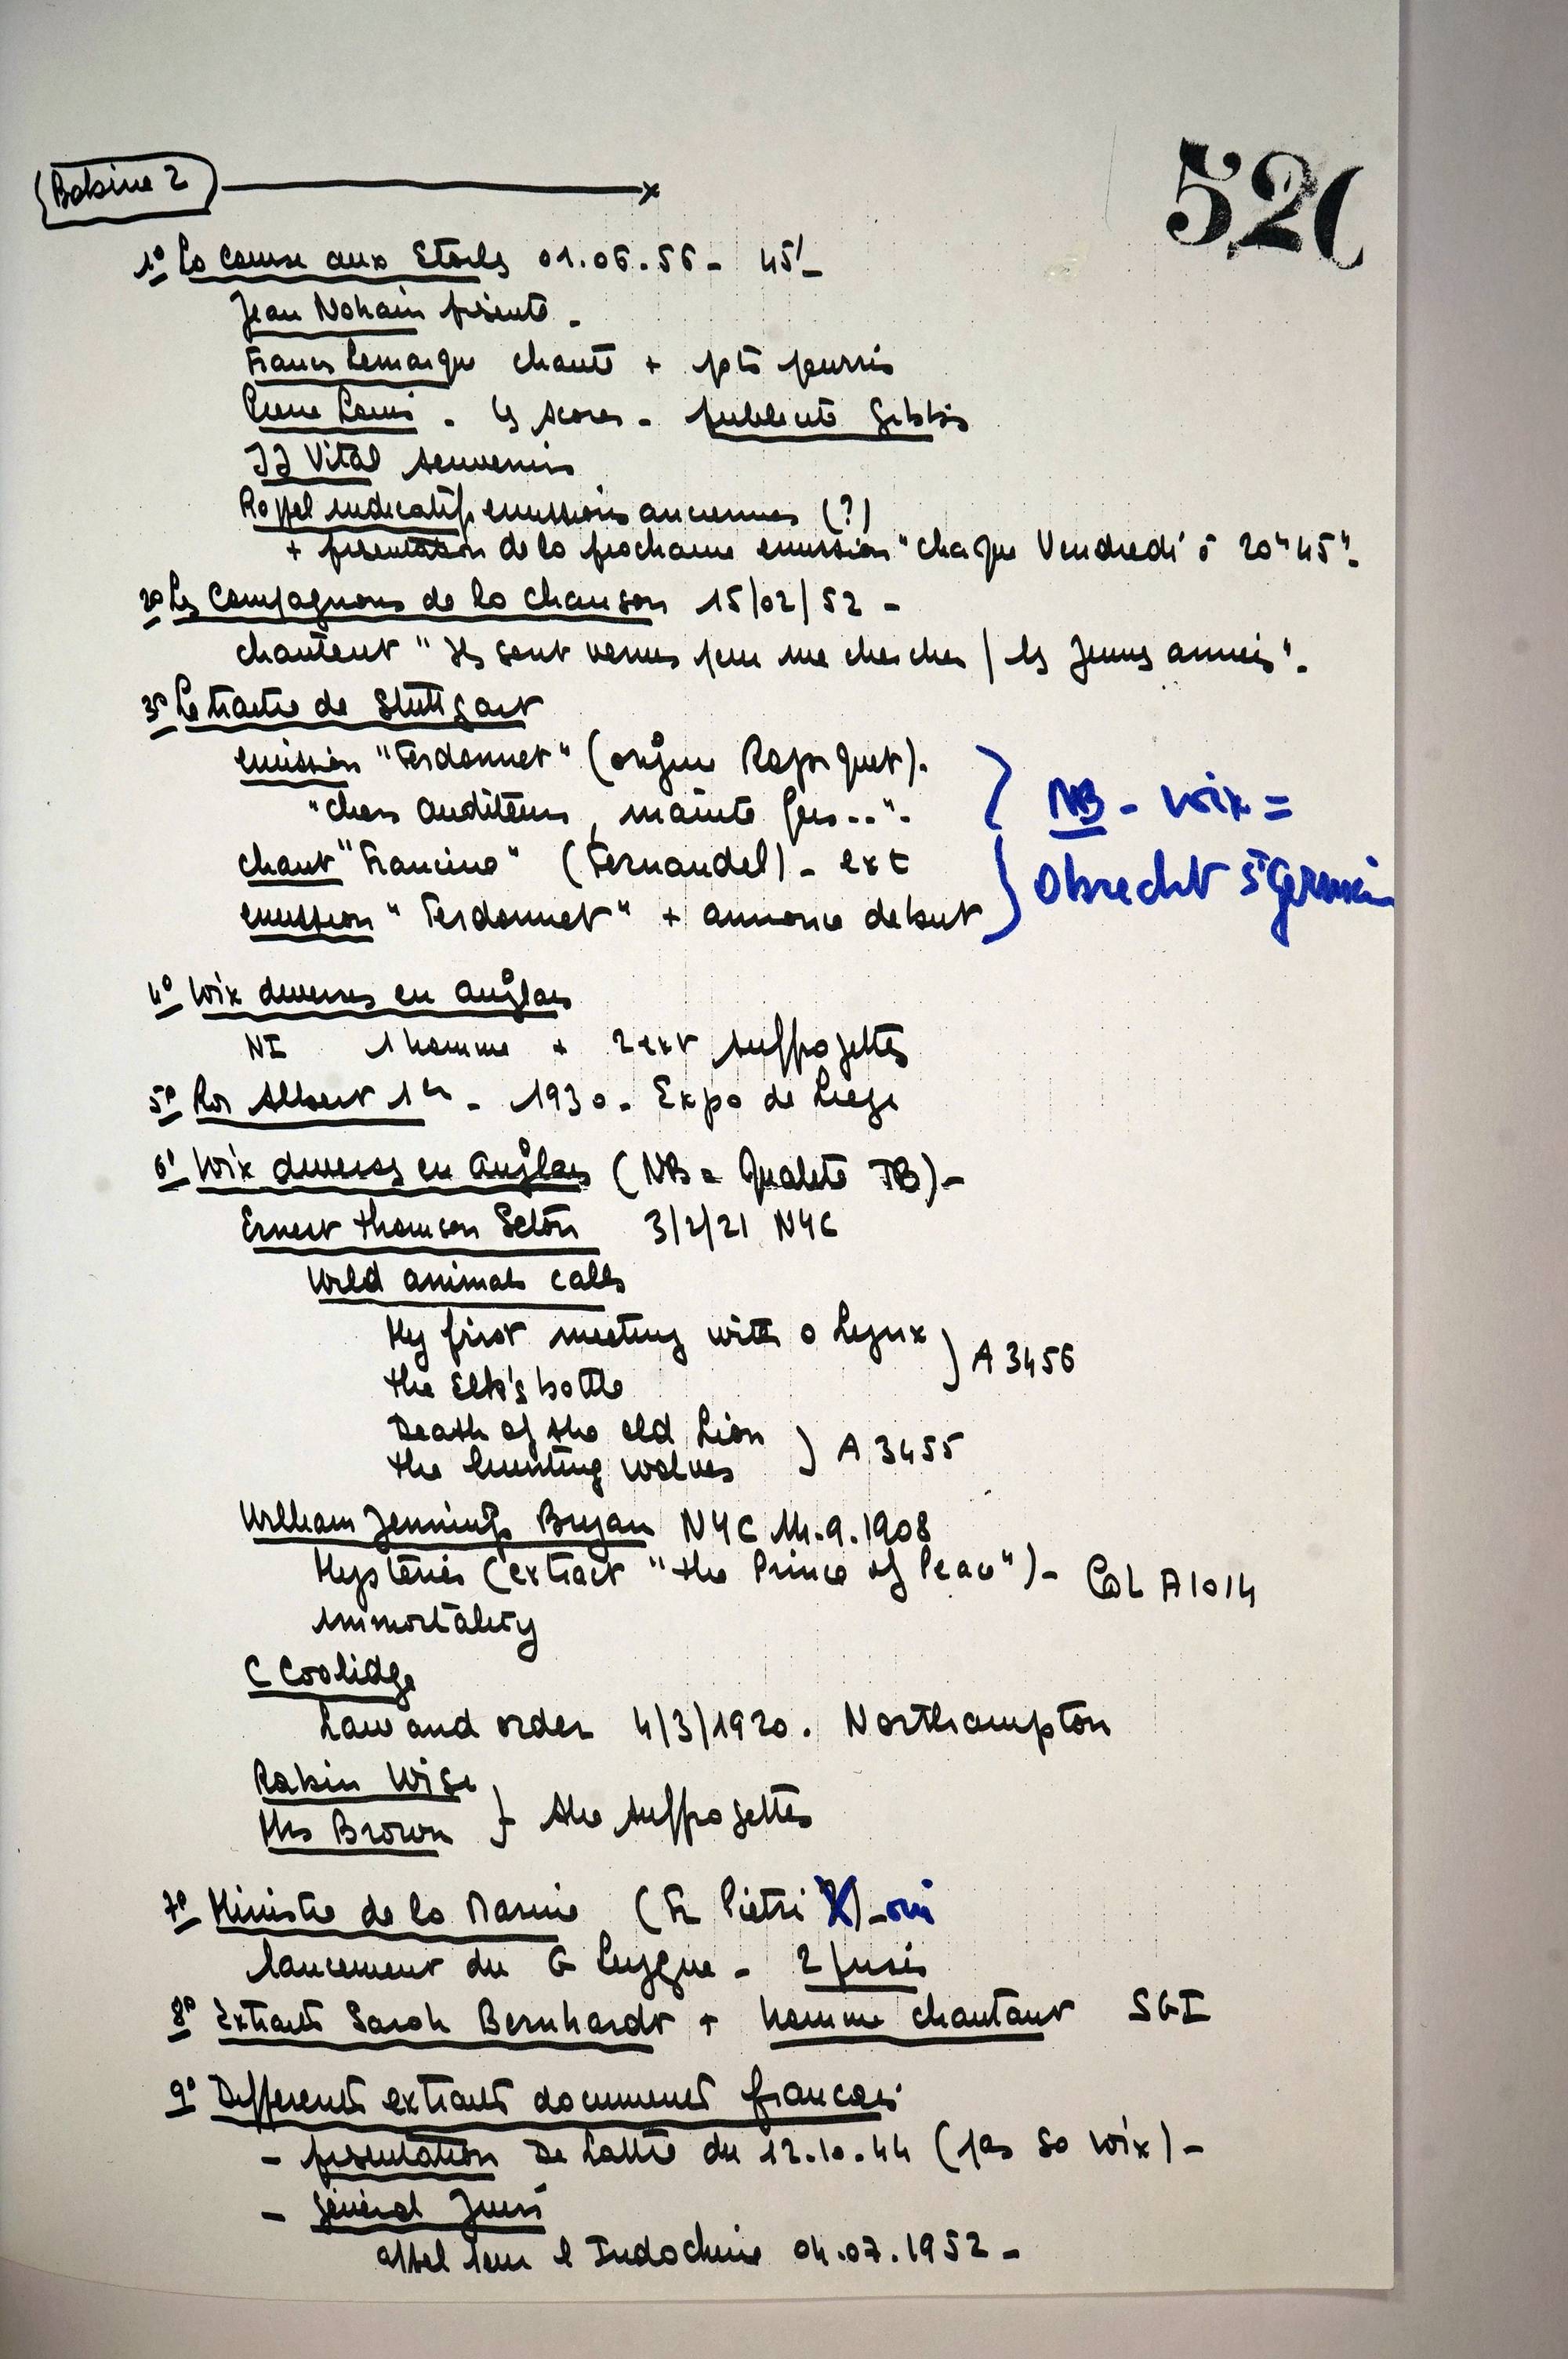 Bobine 2
520
1° La course aux Etoiles 01.06.56 - 45' -
Jean Nohain présente -
Francis Lemarque chante + pots pourris
Pierre Louis - les scores - publicité Gibbs
JJ Vital souvenirs
Rappel indicatifs emissions anciennes (?)
+ presentation de la prochaine emission "chaque Vendredi à 20h45".
2° Les Compagnons de la Chanson 15/02/52 -
chantent "Ils sont venus pour me chercher / les Jeunes années".
3° Le traitre de Stuttgart
emission "Ferdonnet" (origine Rapiquet).
"chers auditeurs, maintes fois..".
chant "Francine" (Fernandel) - ext
emission "Ferdonnet" + annonce debut
NB - Voix =
Obrecht St Germain
4° Voix diverses en anglais
NI 1 homme + 2 ext suffragettes
5° Roi Albert 1er - 1930. Expo de Liege
6° Voix diverses en Anglais (NB = Qualité TB) -
Ernest Thomson Seton 3/2/21 NYC
Wild animals calls
My first meeting with a Lynx
the Elk's battle
} A 3456
Death of the old Lion
the hunting wolves
} A 3455
William Jennings Bryan NYC 14.9.1908
Mysteries (extract "the Prince of Peace") - Col A1014
Immortality
C Coolidge
Law and order 4/3/1920. Northampton
Rabin Wise
Mrs Brown
} the suffragettes
7° Ministre de la Marine (Fr Pietri) - oui
lancement du G Leygue - 2 fusis
8° Extraits Sarah Bernhardt + homme chantant SGI
9° Differents extraits documents francais
- presentation De Lattre du 12.10.44 (pas sa voix) -
- Général Juin
appel pour l Indochine 04.07.1952 -